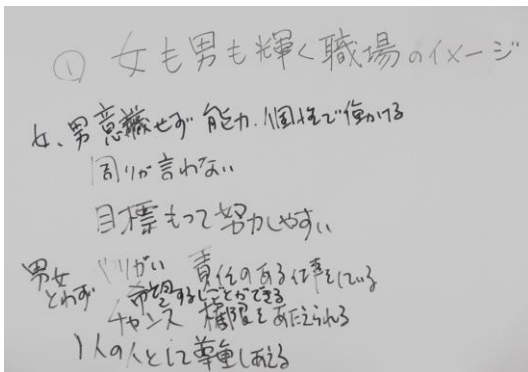 ① 女も男も輝く職場のイメージ
女、男意識せず 能力、個性で働ける
周りが言わない
目標もって努力しやすい
男女とわず
やりがい 責任のある仕事をしている
希望するしごとができる
チャンス 権限をあたえられる
1人の人として尊重しあえる